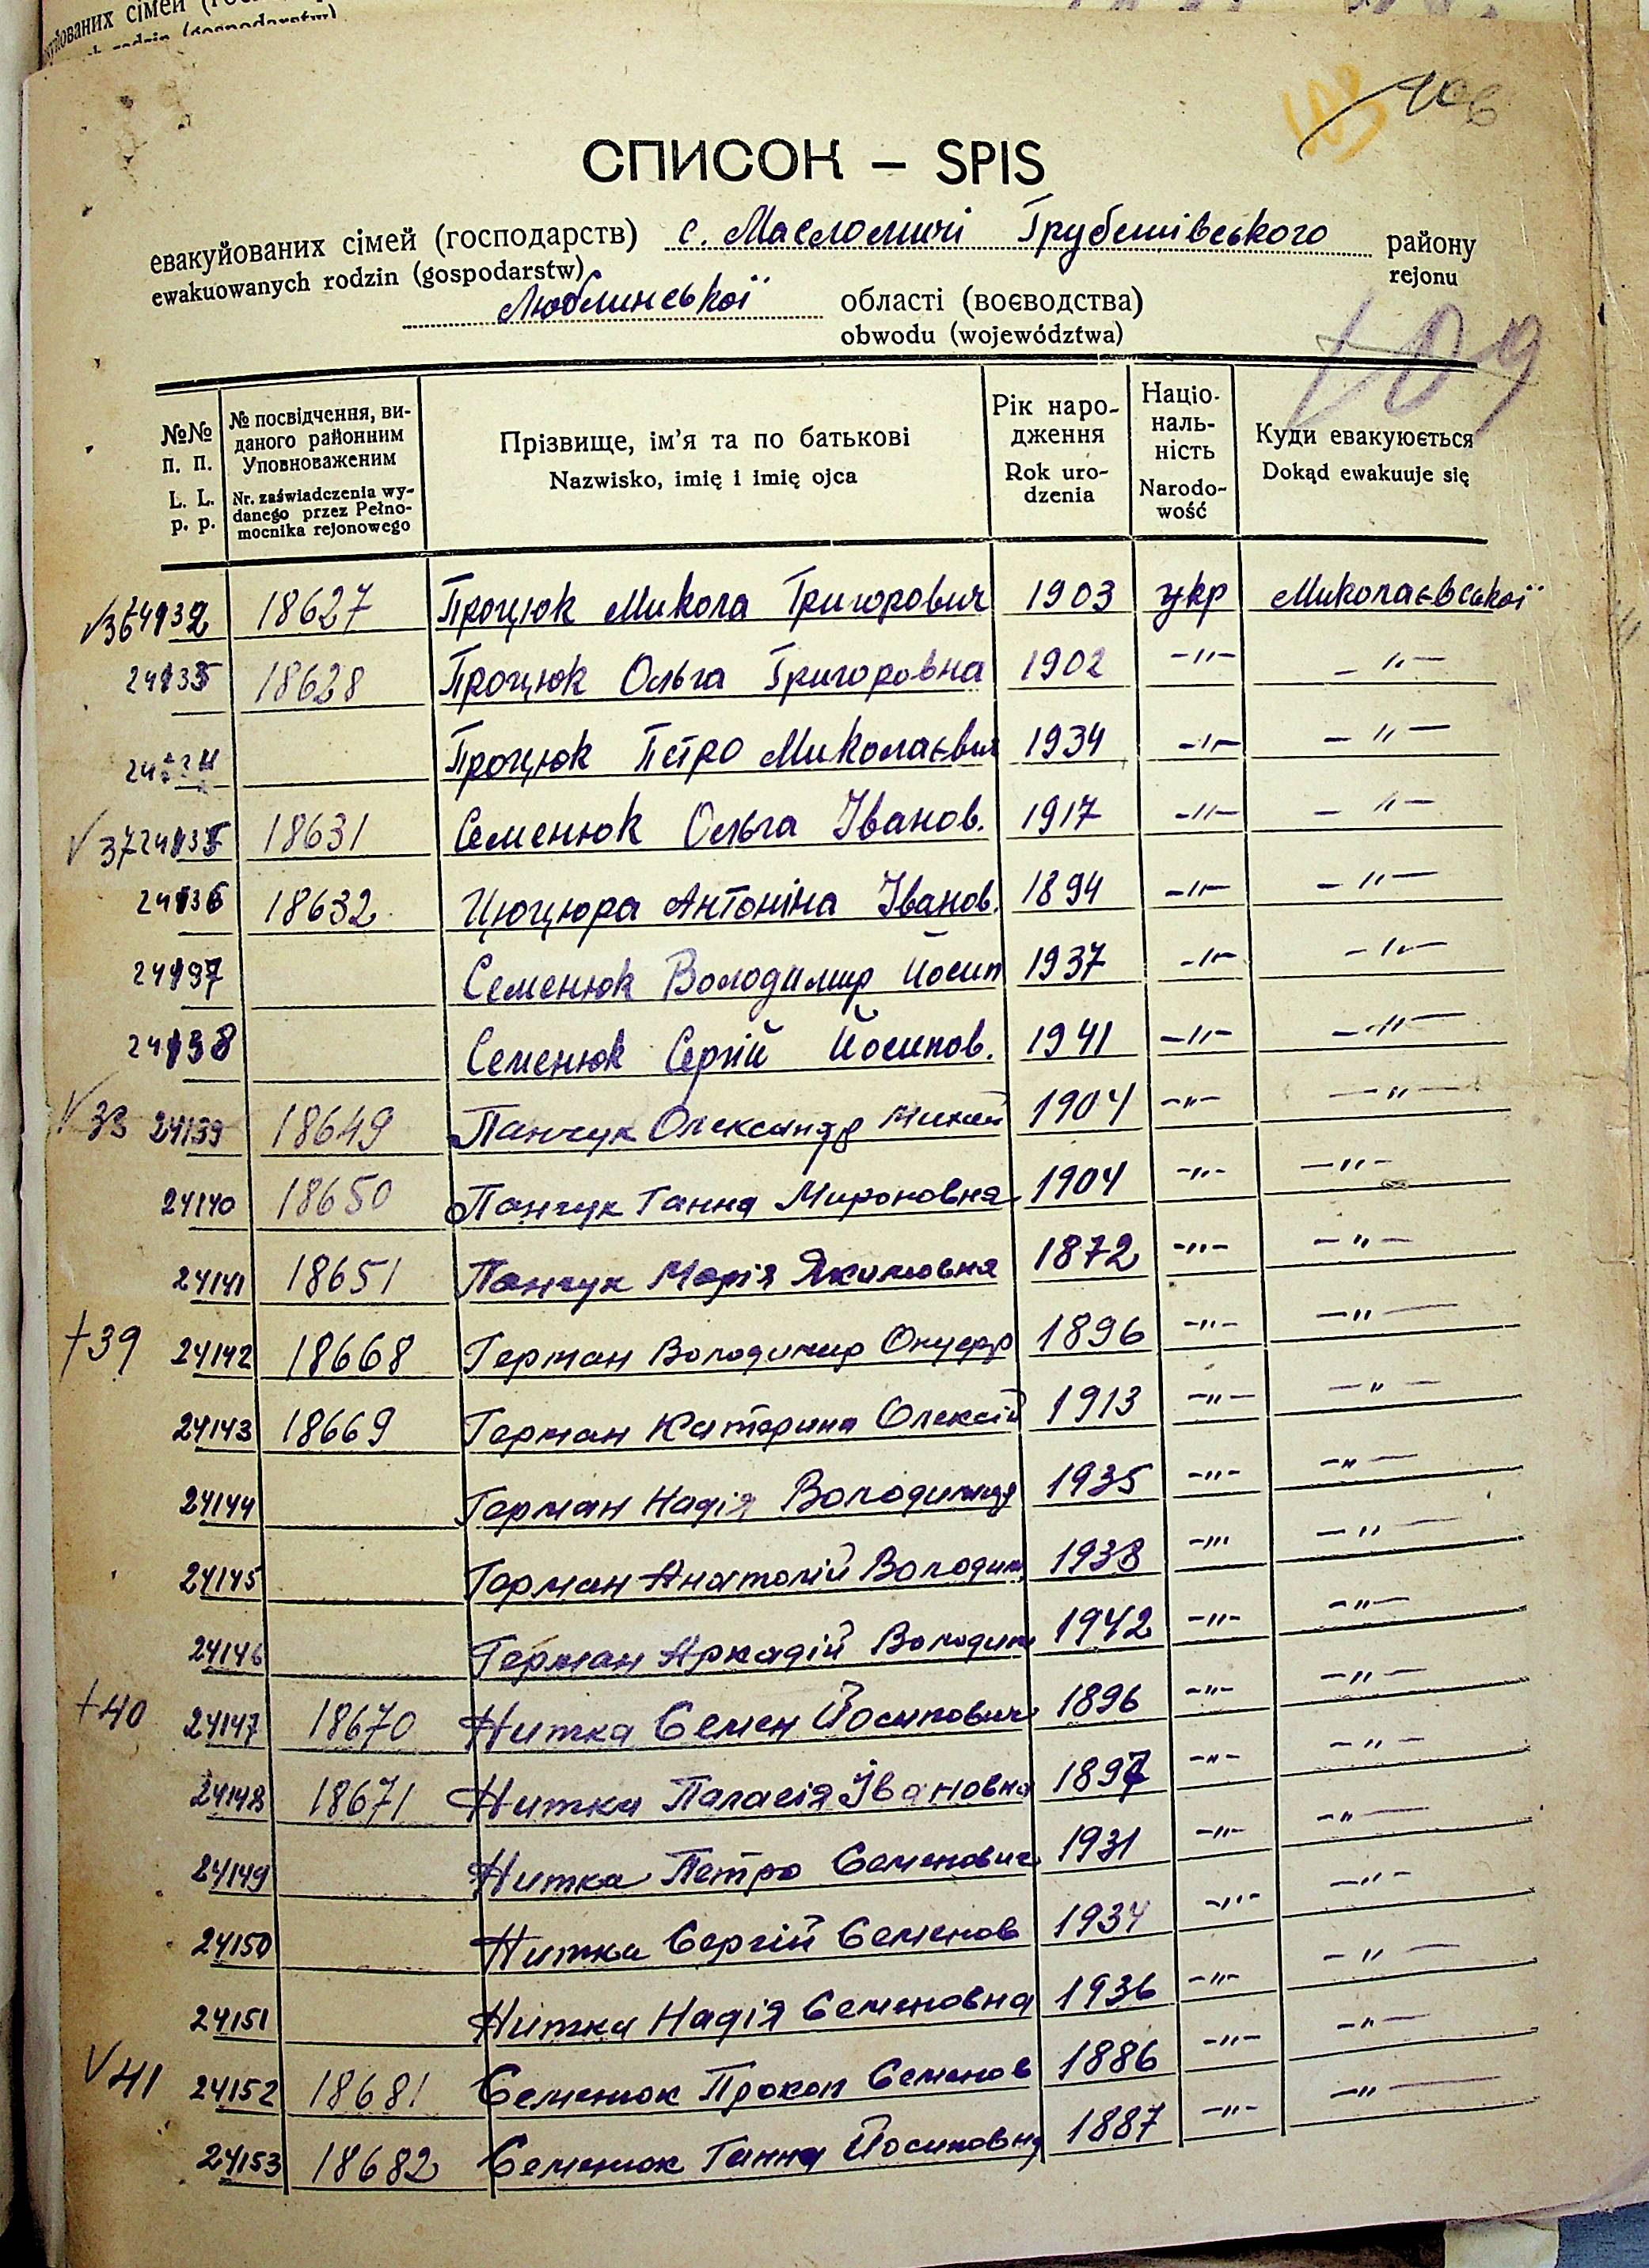 106
СПИСОК — SPIS
евакуйованих сімей (господарств) с. Масломичі Грубешівського району
ewakuowanych rodzin (gospodarstw) rejonu
Люблинської області (воєводства)
obwodu (województwa)
109
№№ п. п. L. L. p. p. № посвідчення, виданого районним Уповноваженим Nr. zaświadczenia wydanego przez Pełnomocnika rejonowego Прізвище, ім'я та по батькові Nazwisko, imię i imię ojca Рік народження Rok urodzenia Національність Narodowość Куди евакуюється Dokąd ewakuuje się
√36 24132 18627 Процюк Микола Григорович 1903 укр Миколаєвської
24133 18628 Процюк Ольга Григоровна 1902 -"- -"-
24134 Процюк Петро Миколаєвич 1934 -"- -"-
√37 24135 18631 Семенюк Ольга Іванов. 1917 -"- -"-
24136 18632 Цюцюра Антоніна Іванов. 1894 -"- -"-
24137 Семенюк Володимир Йосип 1937 -"- -"-
24138 Семенюк Сергій Йосипов. 1941 -"- -"-
√38 24139 18649 Панчук Олександр Михай 1904 -"- -"-
24140 18650 Панчук Ганна Мироновна 1904 -"- -"-
24141 18651 Панчук Марія Якимовна 1872 -"- -"-
+39 24142 18668 Герман Володимир Онуфр 1896 -"- -"-
24143 18669 Герман Катерина Олексій 1913 -"- -"-
24144 Герман Надія Володимир 1935 -"- -"-
24145 Герман Анатолій Володим 1938 -"- -"-
24146 Герман Аркадій Володим 1942 -"- -"-
+40 24147 18670 Нитка Семен Йосипович 1896 -"- -"-
24148 18671 Нитка Паласія Івановна 1897 -"- -"-
24149 Нитка Петро Семенович 1931 -"- -"-
24150 Нитка Сергій Семенов 1934 -"- -"-
24151 Нитка Надія Семеновна 1936 -"- -"-
√41 24152 18681 Семенюк Прокоп Семенов 1886 -"- -"-
24153 18682 Семенюк Ганна Йосиповна 1887 -"- -"-